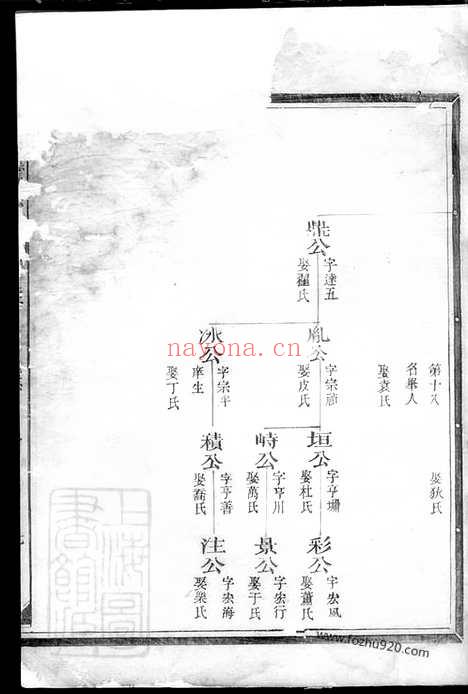 第十八
名舉人
娶袁氏
娶狄氏
鼎公
字達五
娶翟氏
胤公
字宗
娶皮氏
冰公
字宗平
庠生
娶丁氏
垣公
字亨墉
娶杜氏
峙公
字亨川
娶萬氏
積公
字亨善
娶喬氏
彩公
字宏風
娶蕭氏
景公
字宏行
娶于氏
注公
字宏海
娶梁氏
nayona.cn
www.fozhu920.com
上海圖書館藏